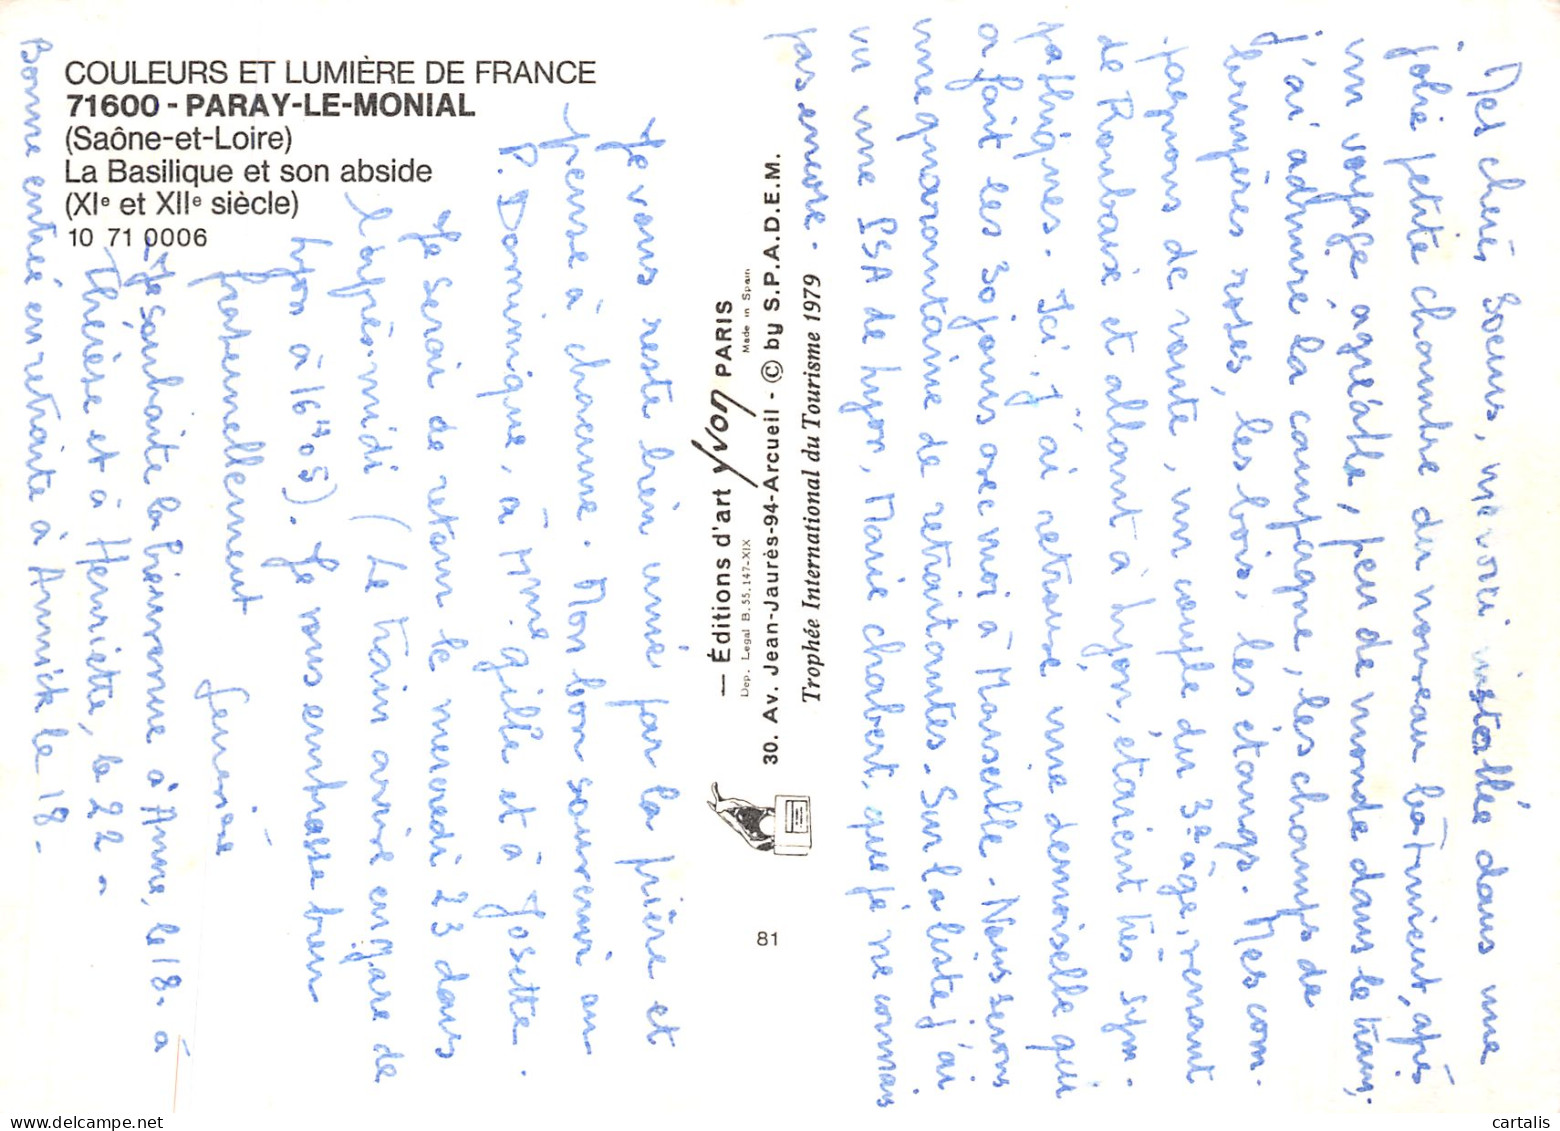 COULEURS ET LUMIÈRE DE FRANCE
71600 - PARAY-LE-MONIAL
(Saône-et-Loire)
La Basilique et son abside
(XIe et XIIe siècle)
10 71 0006
Mes chères Soeurs, me voici installée dans une
jolie petite chambre du nouveau bâtiment, après
un voyage agréable, peu de monde dans le train,
j'ai admiré la campagne, les champs de
bruyères roses, les bois, les étangs. Mes com-
pagnons de route, un couple du 3e âge, venant
de Roubaix et allant à Lyon, étaient très sym-
pathiques. Ici, j'ai retrouvé une demoiselle qui
a fait les 30 jours avec moi à Marseille. Nous serons
une quarantaine de retraitantes. Sur la liste j'ai
vu une PSA de Lyon, Marie Chabert que je ne connais
pas encore.
Je vous reste bien unie par la prière et
pense à chacune. Mon bon souvenir au
P. Dominique, à Mme Gille et à Josette.
Je serai de retour le mercredi 23 dans
l'après-midi (Le train arrive en gare de
Lyon à 16H05). Je vous embrasse bien
fraternellement
Germaine
Je souhaite la bienvenue à Anne, le 18. à
Thérèse et à Henriette, le 22.
Bonne entrée en retraite à Annick le 18.
— Éditions d'art Yvon PARIS
Dep. Legal B. 55.147-XIX
Made in Spain
30. Av. Jean-Jaurès-94-Arcueil - © by S.P.A.D.E.M.
Trophée International du Tourisme 1979
81
© delcampe.net
cartalis